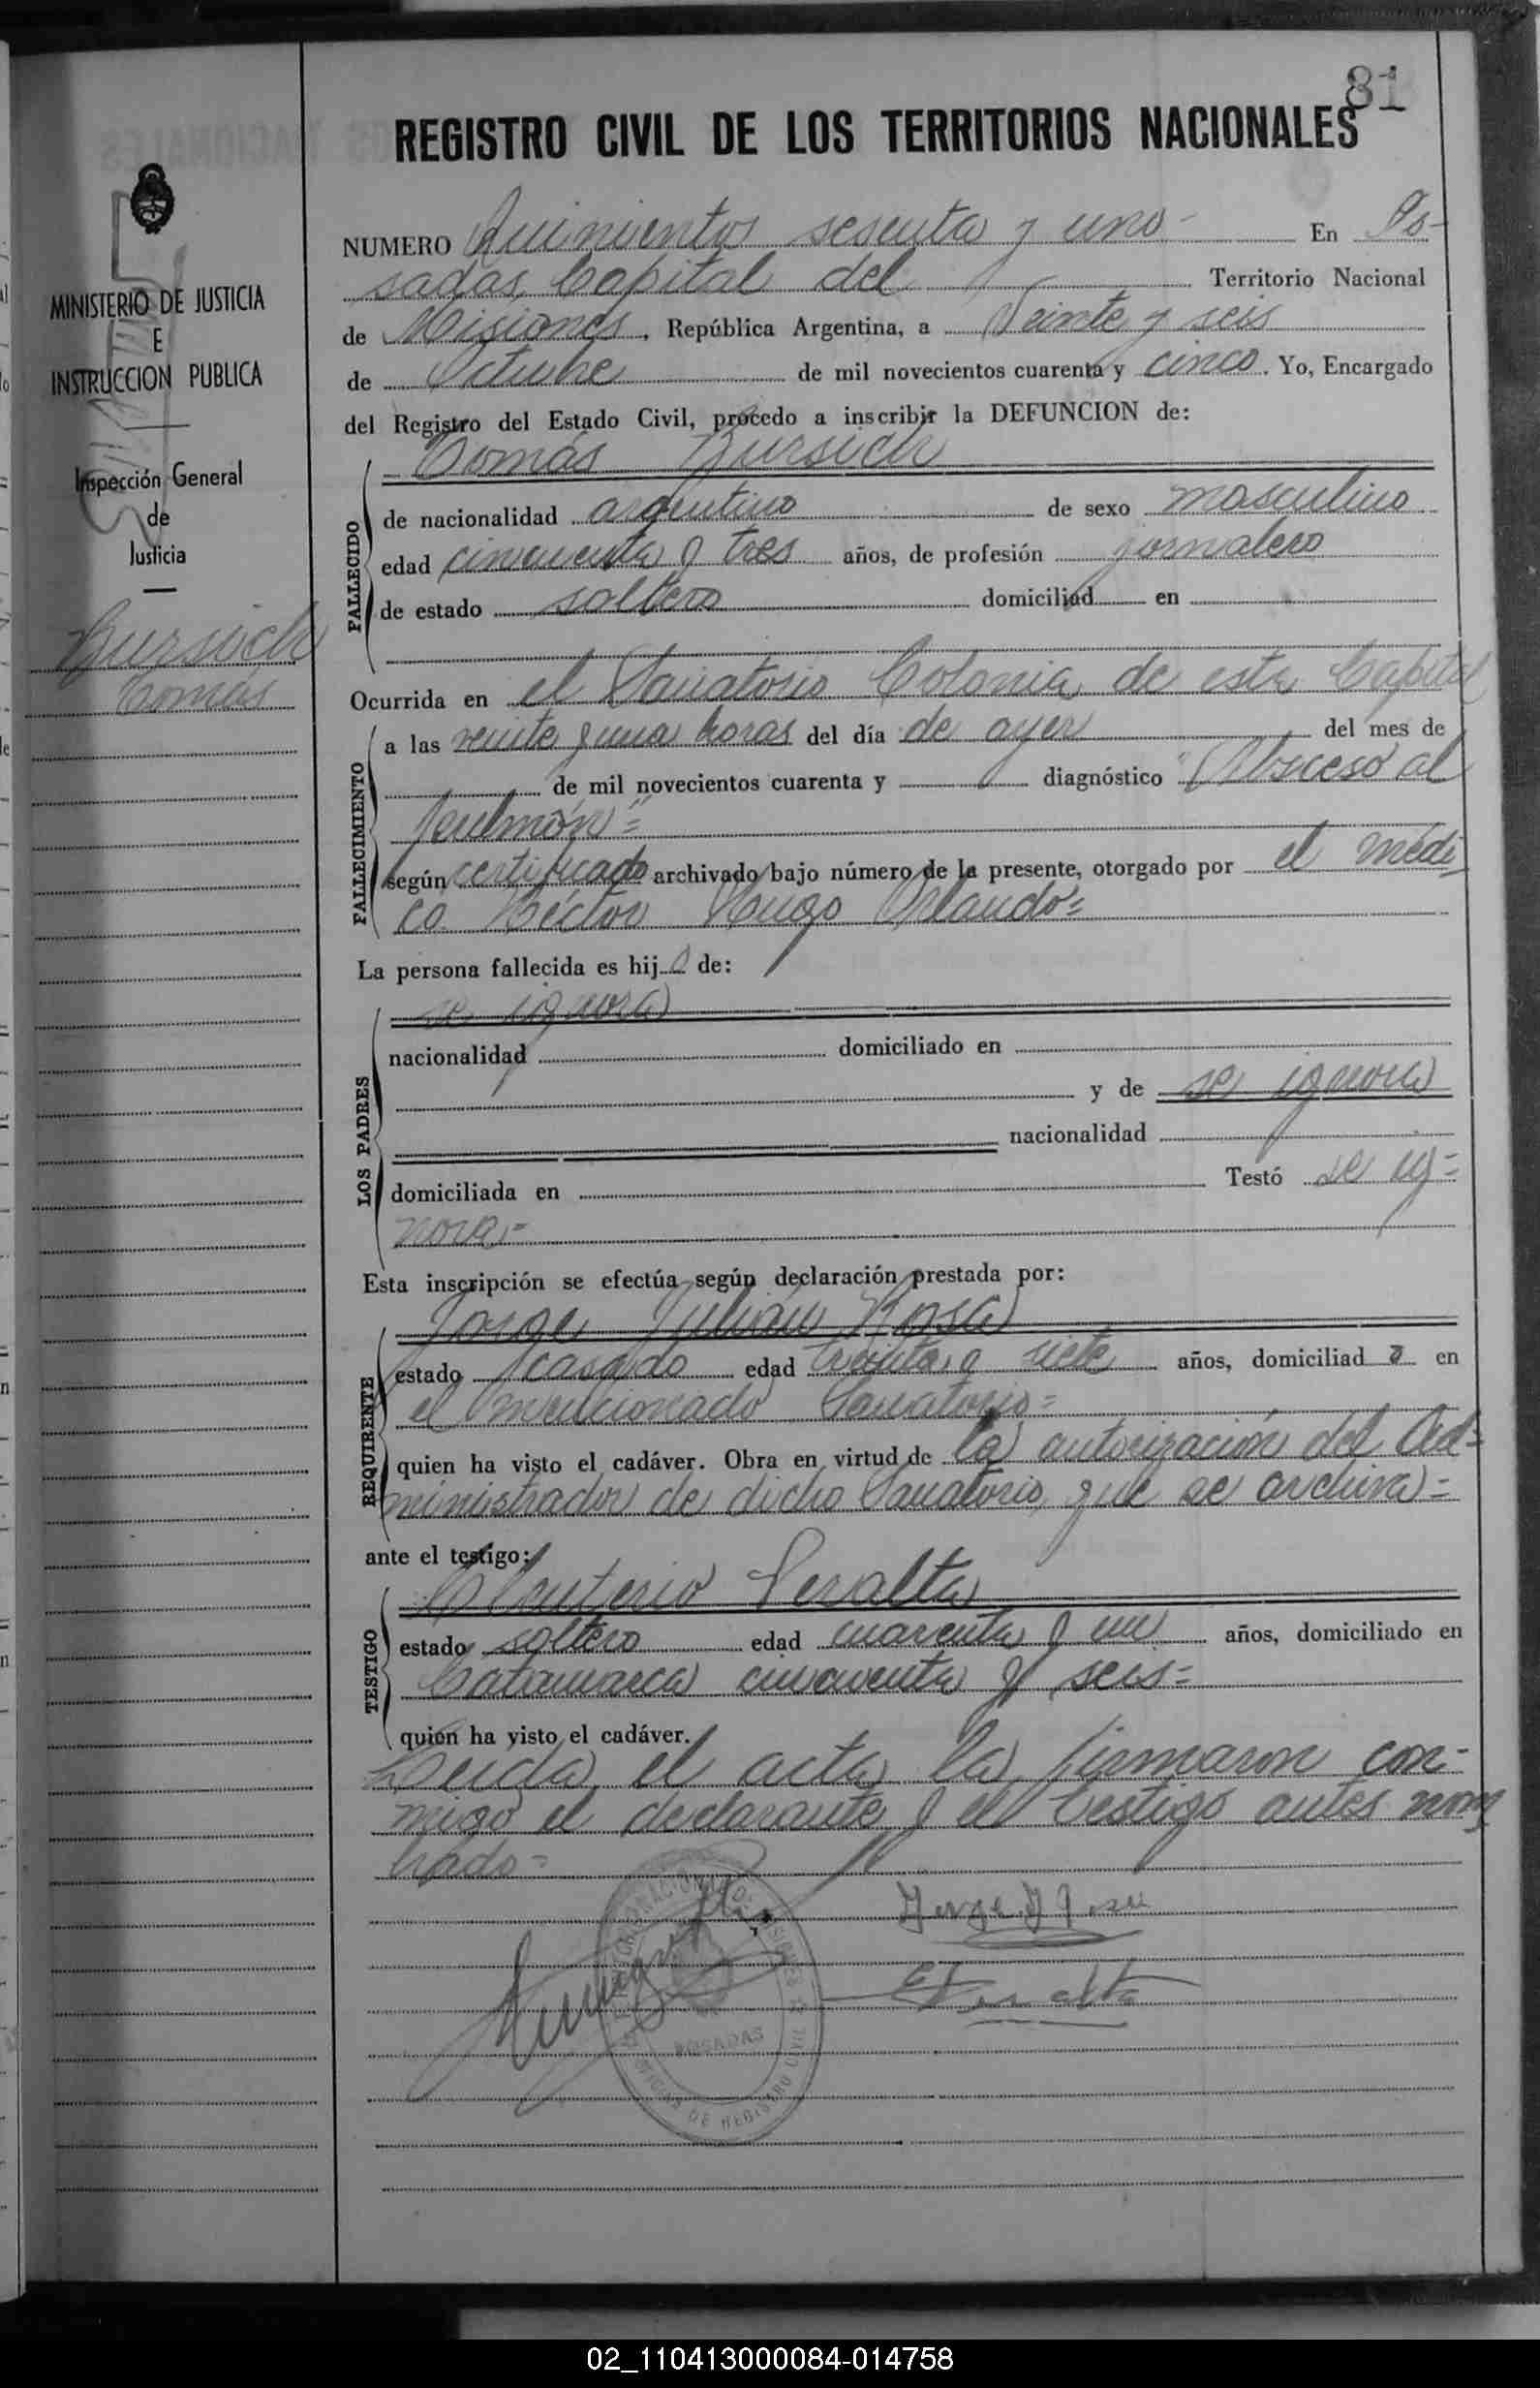 81
REGISTRO CIVIL DE LOS TERRITORIOS NACIONALES
MINISTERIO DE JUSTICIA
E
INSTRUCCION PUBLICA
Inspección General
de
Justicia
Bursich
Tomás
NUMERO Quinientos sesenta y uno - En Po-
sadas, Capital del Territorio Nacional
de Misiones, República Argentina, a Veinte y seis
de Octubre de mil novecientos cuarenta y cinco. Yo, Encargado
del Registro del Estado Civil, procedo a inscribir la DEFUNCION de:
Tomás Bursich
FALLECIDO
de nacionalidad argentino de sexo masculino
edad cincuenta y tres años, de profesión jornalero
de estado soltero domiciliad en
Ocurrida en el Sanatorio Colonia de esta Capital
FALLECIMIENTO
a las veinte y una horas del día de ayer del mes de
de mil novecientos cuarenta y diagnóstico "Absceso al
pulmón"=
según certificado archivado bajo número de la presente, otorgado por el médi
co Héctor Hugo Orlando=
La persona fallecida es hijo de:
LOS PADRES
se ignora
nacionalidad domiciliado en
y de se ignora
nacionalidad
domiciliada en Testó se ig=
nora-
Esta inscripción se efectúa según declaración prestada por:
REQUIRENTE
Jorge Julián Rosa
estado casado edad treinta y siete años, domiciliado en
el mencionado Sanatorio=
quien ha visto el cadáver. Obra en virtud de la autorización del Ad=
ministrador de dicho Sanatorio que se archiva=
ante el testigo:
TESTIGO
Eleuterio Peralta
estado soltero edad cuarenta y un años, domiciliado en
Catamarca cincuenta y seis=
quien ha visto el cadáver.
Leida el acta la firmaron con-
migo el declarante y el testigo antes nom
brado=
Jorge J Rosa
E Peralta
POSADAS
02_110413000084-014758